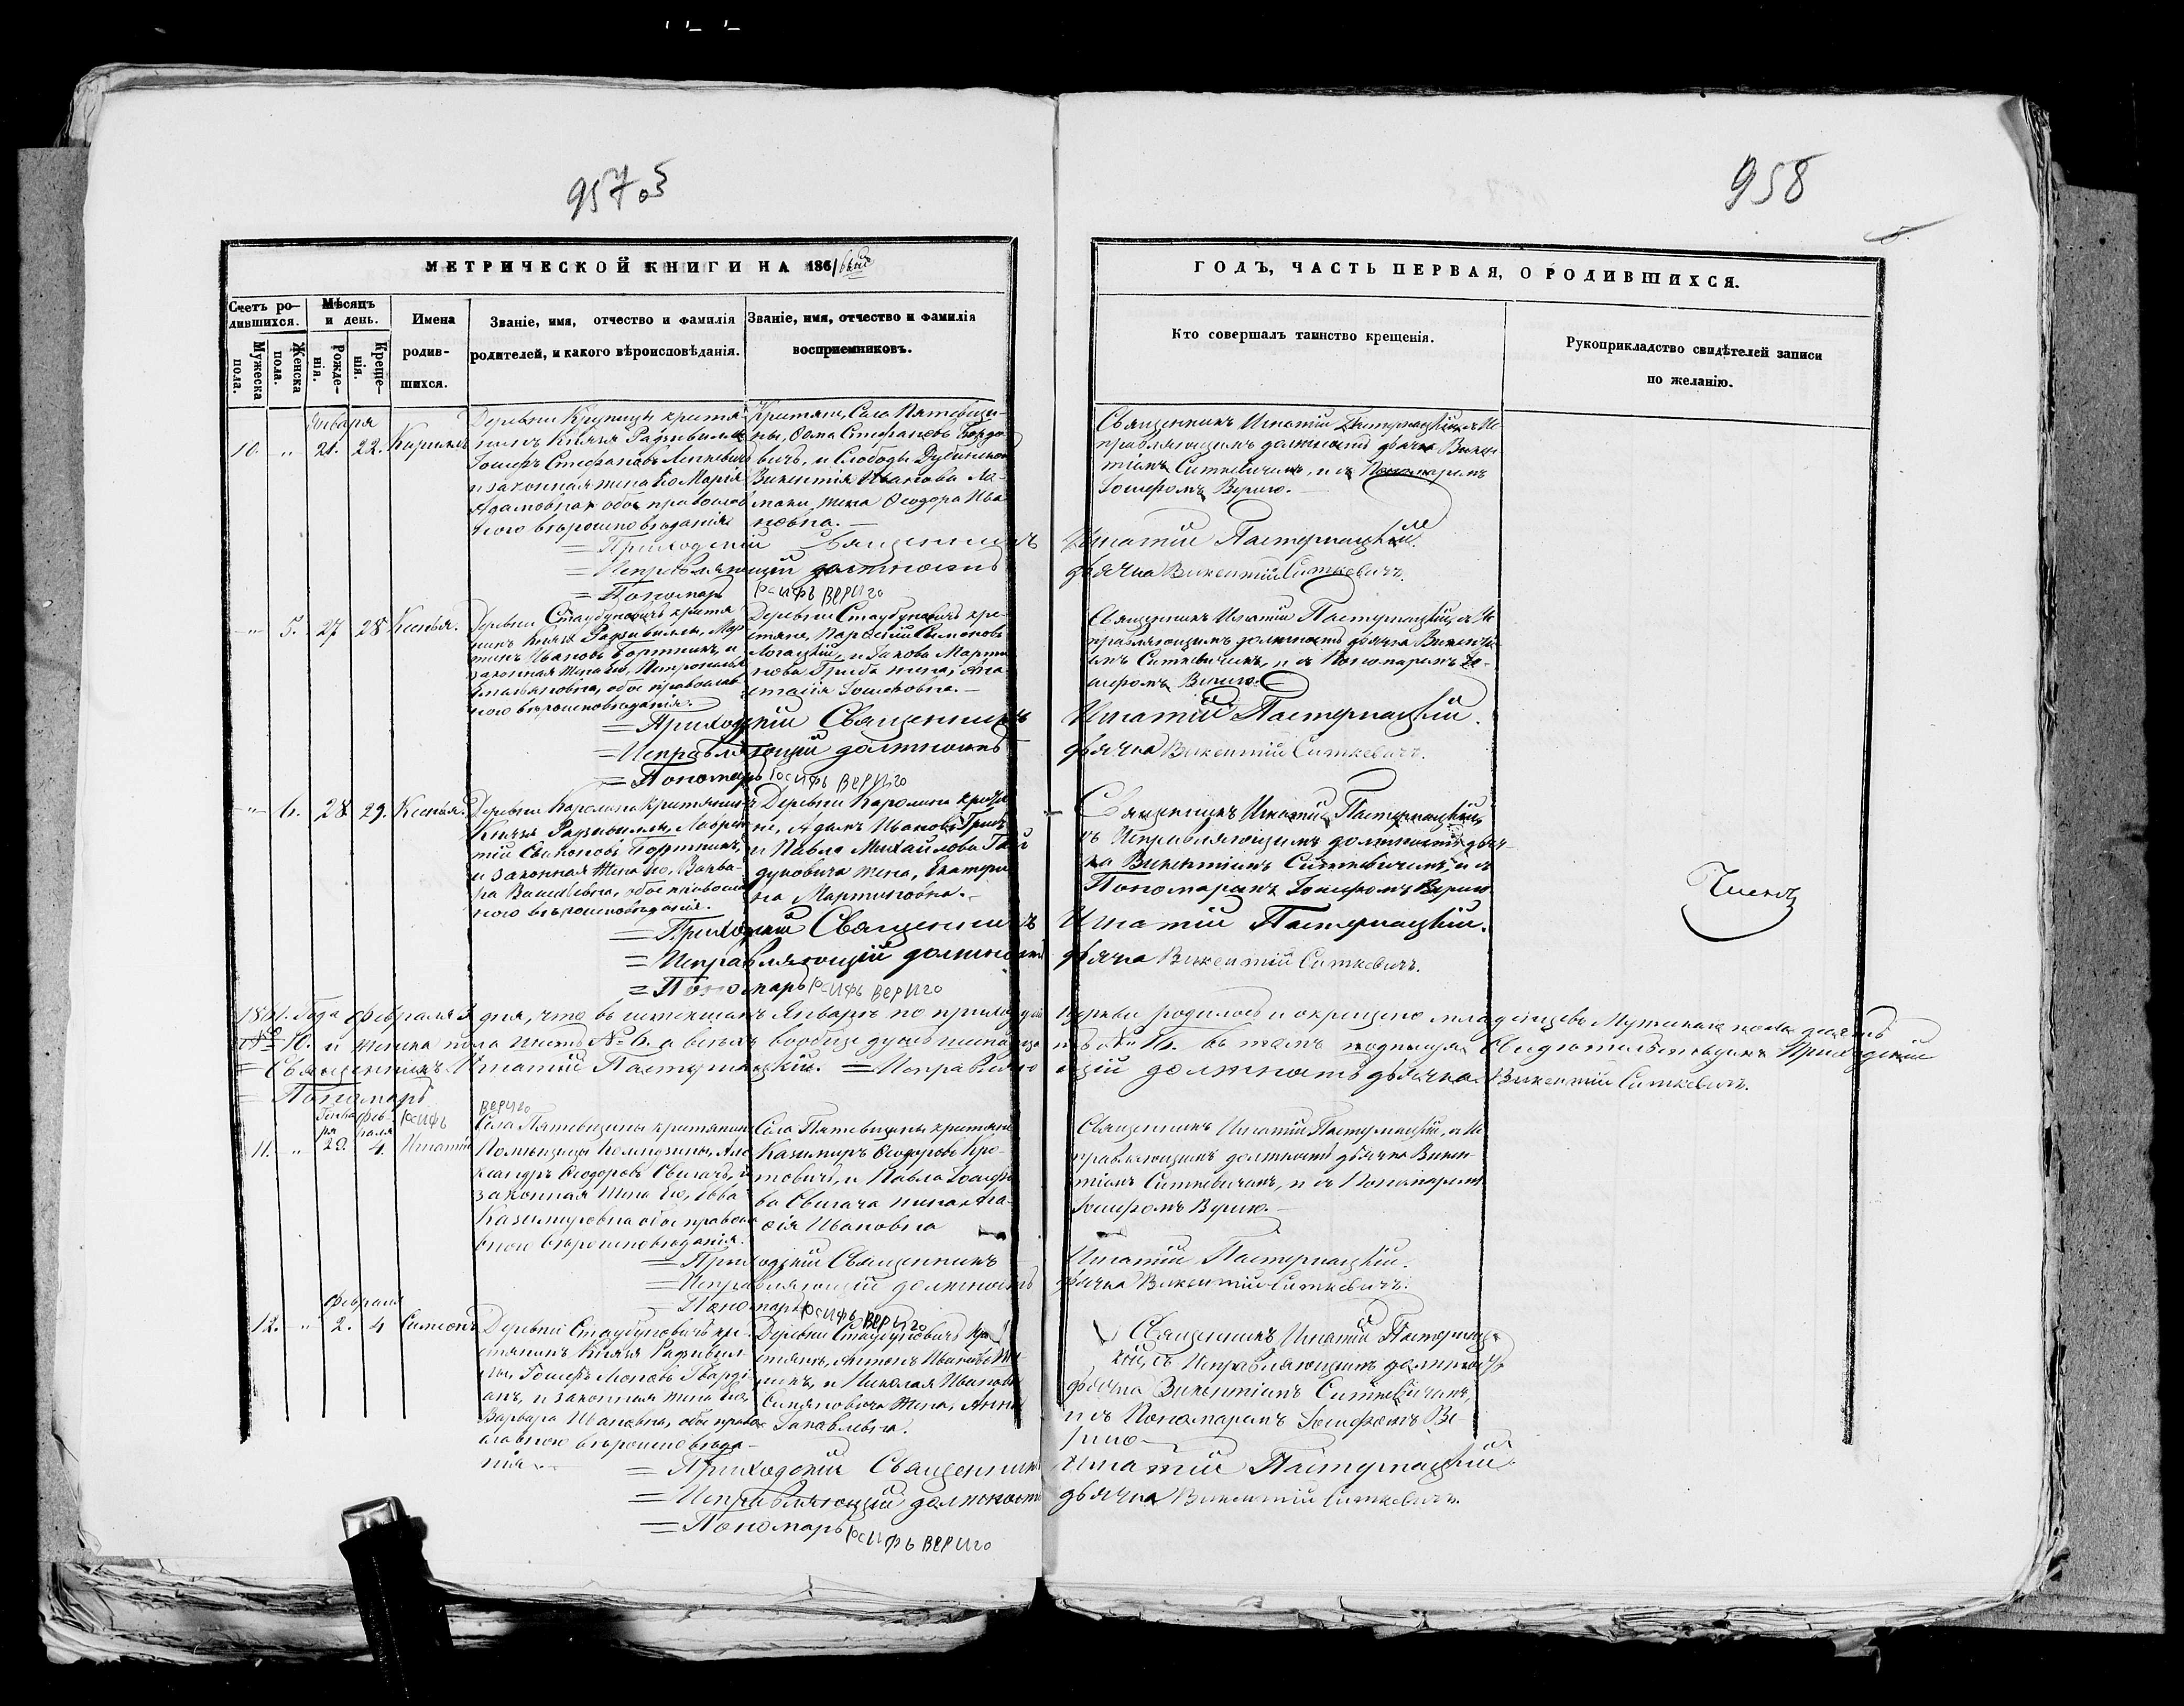 957 об
958
МЕТРИЧЕСКОЙ КНИГИ НА 1861
ГОДЪ, ЧАСТЬ ПЕРВАЯ, О РОДИВШИХСЯ.
Счетъ ро-
дившихся.
Мужеска пола.
Женска пола.
Мѣсяцъ
и день.
Рожде-
нія.
Креще-
нія.
Имена
родив-
шихся.
Званіе, имя, отчество и фамилія
родителей, и какого вѣроисповѣданія.
Званіе, имя, отчество и фамилія
восприемниковъ.
Кто совершалъ таинство крещенія.
Рукоприкладство свидѣтелей записи
по желанію.
Января
10. " 21. 22. Кириллъ
Деревни Крупицы крестья-
нинъ Князя Радзивилла
Іосифъ Стефановъ
и законная жена его Марія
Адамовна обое православ
наго вѣроисповѣданія
Крестьяне, Села Пятевщи-
ны, Ѳома Стефановъ
вичъ, и Слободы
Викентія Иванова
жена Ѳеодора Ива
новна.
Священникъ Игнатій Пастернацкій, съ Ис
правляющимъ должность дьячка Викен
тіемъ Ситкевичемъ, и съ Пономаремъ
Іосифомъ Вериго.
= Приходскій Священникъ Игнатій Пастернацкій.
= Исправляющій должность дьячка Викентій Ситкевичъ.
= Пономарь Іосифъ Вериго
" 5. 27 28 Ксенья.
Деревни Стаубуновичъ крестья
нинъ Князя Радзивиллы, Мар
тинъ Ивановъ Бортникъ, и
законная жена его, Петронилья
обое православ
наго вѣроисповѣданія.
Деревни Стаубуновичъ кре-
стьяне, Парѳеній Симоновъ
и Якова Марти
нова Гриба жена, Ана
стасія Іосифовна.
Священникъ Игнатій Пастернацкій, съ Ис
правляющимъ должность дьячка Викенті
емъ Ситкевичемъ, и съ Пономаремъ Іо-
сифомъ Вериго.
= Приходскій Священникъ Игнатій Пастернацкій.
= Исправляющій должность дьячка Викентій Ситкевичъ.
= Пономарь Іосифъ Вериго
" 6. 28 29. Ксенья.
Деревни Каролина крестьянинъ
Князя Радзивиллы, Лаврен
тій Симоновъ Бортникъ,
и законная жена его, Варва-
ра Васильевна, обое православ
наго вѣроисповѣданія.
Деревни Каролина крестья
не, Адамъ Ивановъ Грибъ
и Павла Михайлова Гай
дуковича жена, Екатери
на Мартиновна.
Священникъ Игнатій Пастернацкій,
съ Исправляющимъ должность дьяч-
ка Викентіемъ Ситкевичемъ, и съ
Пономаремъ Іосифомъ Вериго
= Приходскій Священникъ Игнатій Пастернацкій.
= Исправляющій должность дьячка Викентій Ситкевичъ.
= Пономарь Іосифъ Вериго
1861. Года Февраля дня, что въ истекшемъ Январѣ по приходу сей церкви родилось и окрещено младенцевъ Мужеска пола десять
№ 10. и женска пола шесть № 6. а всѣхъ вообще душъ № 16. въ томъ подписомъ свидѣтельствуемъ Приходскій
= Священникъ Игнатій Пастернацкій. = Исправляющій должность дьячка Викентій Ситкевичъ.
= Пономарь Іосифъ Вериго
Января Февраля
11. " 29. 4. Игнатій
Села Пятевщины крестьянинъ
Помѣщицы Але
ксандръ Ѳеодоровъ Свигачъ, и
законная жена его, Евва
Казимировна обое правосла
внаго вѣроисповѣданія.
Села Пятевщины крестьяне
Казимиръ Ѳеодоровъ
и Павла Іосифо
ва Свигача жена
Ивановна
Священникъ Игнатій Пастернацкій, съ Ис
правляющимъ должность дьячка Викен-
тіемъ Ситкевичемъ, и съ Пономаремъ
Іосифомъ Вериго.
= Приходскій Священникъ Игнатій Пастернацкій.
= Исправляющій должность дьячка Викентій Ситкевичъ.
= Пономарь Іосифъ Вериго
Февраля
12. " 2. 4 Симеонъ
Деревни Стаубуновичъ кре-
стьянинъ Князя Радзивил
лы, Іосифъ
и законная жена его,
Варвара Ивановна, обое право
славнаго вѣроисповѣда-
нія.
Деревни Стаубуновичъ кре
стьяне, Антонъ Ивановъ
и Николая Иванова
жена, Анна
Яковлевна.
Священникъ Игнатій Пастернац-
кій, съ Исправляющимъ должность
дьячка Викентіемъ Ситкевичемъ,
и съ Пономаремъ Іосифомъ Ве-
риго
= Приходскій Священникъ Игнатій Пастернацкій.
= Исправляющій должность дьячка Викентій Ситкевичъ.
= Пономарь Іосифъ Вериго